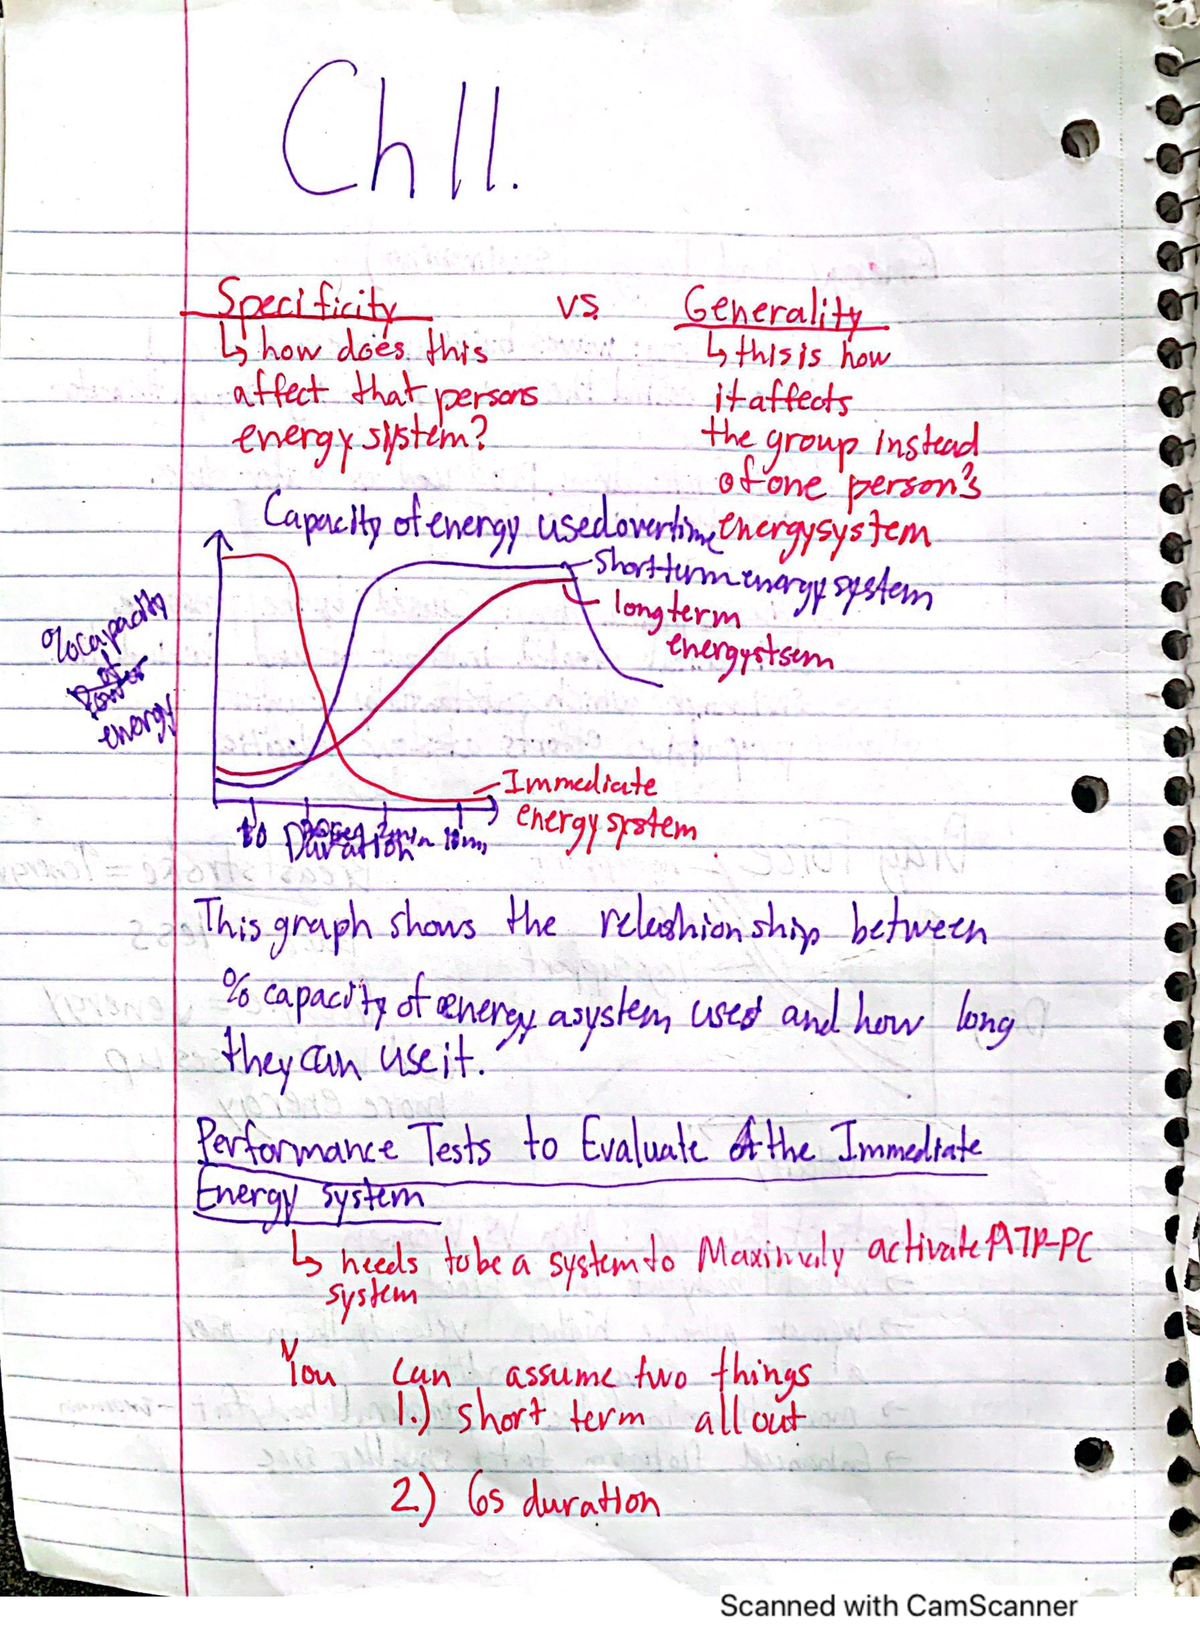 Ch 11.
Specificity vs. Generality
↳ how does this
affect that persons
energy system?
↳ this is how
it affects
the group instead
of one person's
energy system
Capacity of energy used overtime
% capacity
of
energy
short term energy system
long term
energy stsem
Immediate
energy system
10 30sec 2min 10min
Duration
This graph shows the relashionship between
% capacity of energy a system used and how long
they can use it.
Performance Tests to Evaluate the Immediate
Energy system
↳ needs to be a system to Maximaly activate ATP-PC
system
You can assume two things
1.) short term all out
2.) 6s duration
Scanned with CamScanner